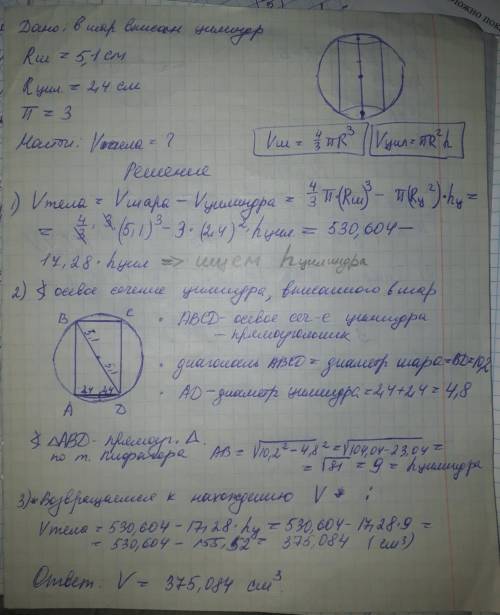 Дано: в шар вписан цилиндр
Rш = 5,1 см
Rцил. = 2,4 см
П = 3
Найти: Vтела = ?
Vш = 4/3 πR³
Vцил = πR²h
Решение
1) Vтела = Vшара − Vцилиндра = 4/3 π·(Rш)³ − π(Rц²)·hц =
= 4/3 · 3 · (5,1)³ − 3 · (2,4)² · hцил = 530,604 −
17,28 · hцил => ищем hцилиндра
2) осевое сечение цилиндра, вписанного в шар
B C
5,1
5,1
2,4 2,4
A D
• ABCD - осевое сеч-е цилиндра
− прямоугольник
• диагональ ABCD = диаметр шара = BD = 10,2
• AD - диаметр цилиндра = 2,4 + 2,4 = 4,8
△ABD - прямоуг. △.
по т. Пифагора AB = √10,2² − 4,8² = √104,04 − 23,04 =
= √81 = 9 = hцилиндра
3) Возвращаемся к нахождению V :
Vтела = 530,604 − 17,28 · hц = 530,604 − 17,28 · 9 =
= 530,604 − 155,52 = 375,084 (см³)
Ответ: V = 375,084 см³.